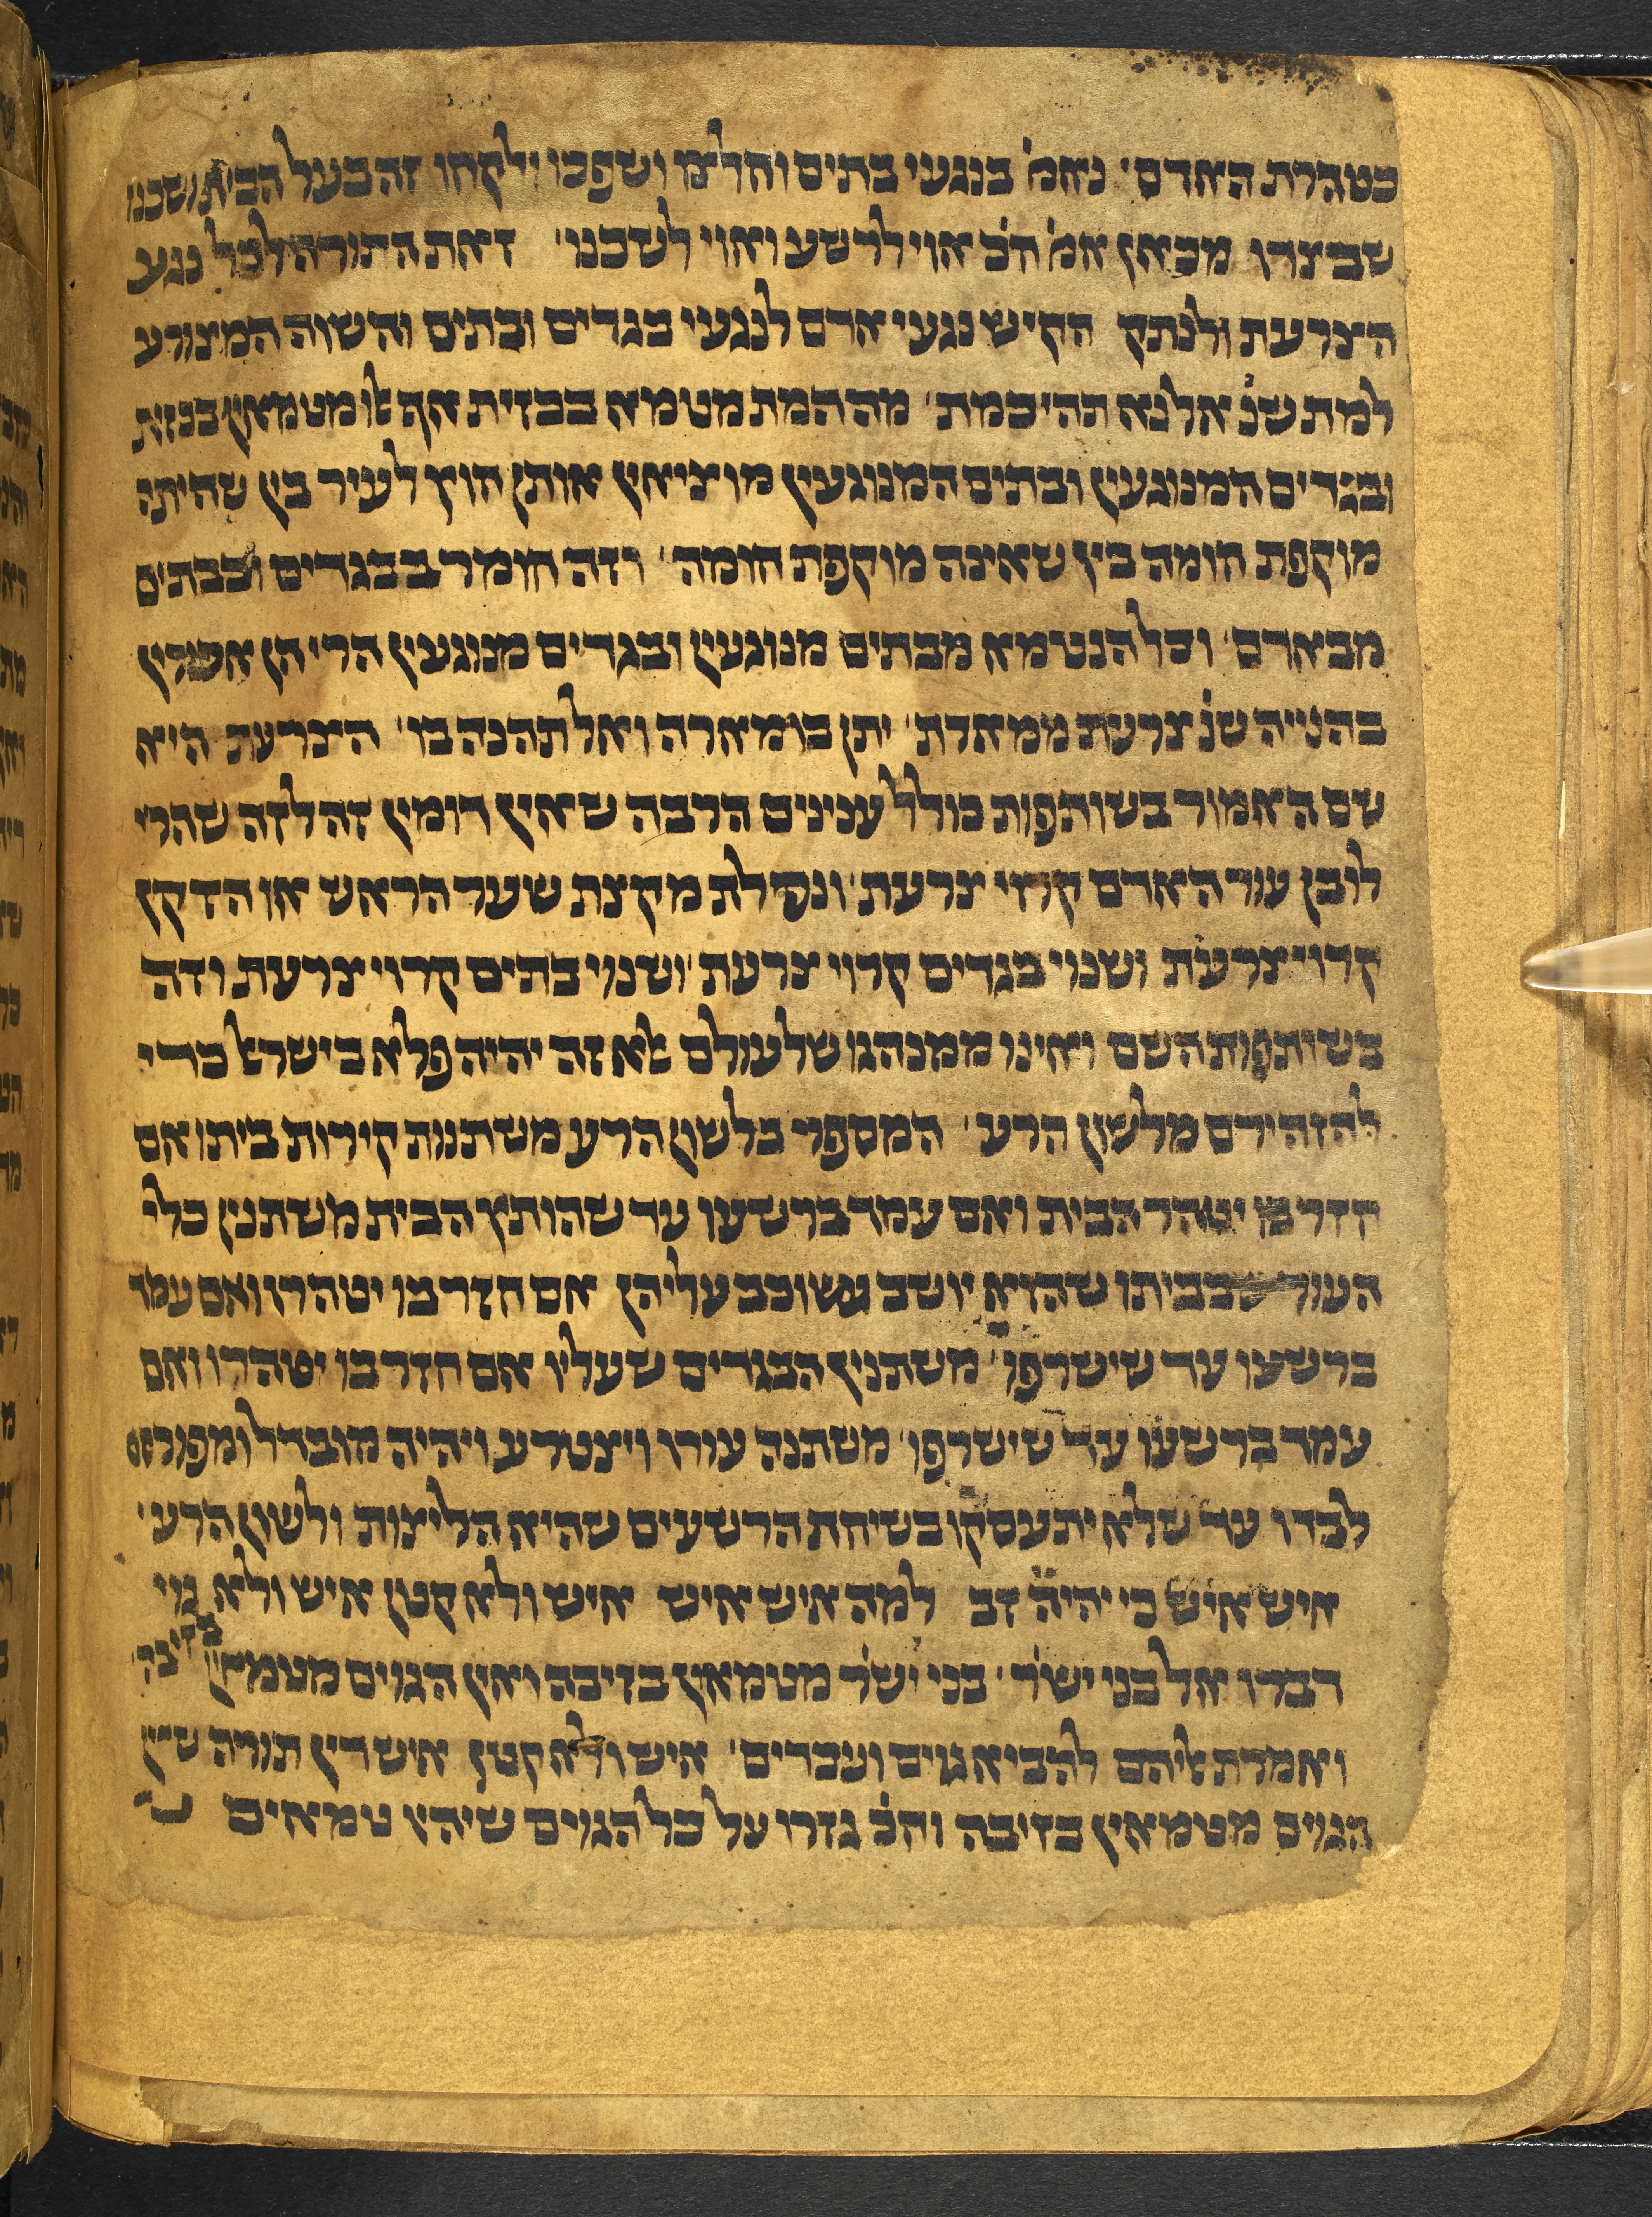 כטהרת האדם׳ נאמ׳ בנגעי בתים וחלצו ושפכו ילקחו זה בעל הבית ושכנו
שבצדו מכאן אמ׳ חכ׳ אוי לרשע ואוי לשכנו׳ זאת התורה לכל נגע
הצרעת ולנתק הקיש נגעי אדם לנגעי בגדים ובתים והשוה המצורע
למת שנ׳ אל נא תהי כמת׳ מה המת מטמא בכזית אף אלו מטמאין בכזית
ובגדים המנוגעין ובתים המנוגעין מוציאין אותן חוץ לעיר בין שהיתה
מוקפת חומה בין שאינה מוקפת חומה׳ וזה חומר בבגדים ובבתים
מבאדם׳ וכל הנטמא מבתים מנוגעין ובגדים מנוגעין הרי הן אסורין
בהנייה שנ׳ צרעת ממארת׳ יתן בו מארה ואל תהנה בו׳ הצרעת היא
שם האמור בשותפות כולל ענינים הרבה שאין דומין זה לזה שהרי
לובן עור האדם קרוי צרעת׳ ונפילת מקצת שער הראש או הזקן
קרוי צרעת ושנוי בגדים קרוי צרעת׳ ושנוי בתים קרוי צרעת וזה
בשותפות השם ואינו ממנהגו של עולם אלא זה יהיה פלא בישראל כדי
להזהירם מלשון הרע׳ המספר בלשון הרע משתנות קירות ביתו אם
חזר בו יטהר הבית ואם עמד ברשעו עד שהותץ הבית משתנין כלי
העור שבביתו שהוא יושב ושוכב עליהן אם חזר בו יטהרו ואם עמד
ברשעו עד שישרפו׳ משתנין הבגדים שעליו אם חזר בו יטהרו ואם
עמד ברשעו עד שישרפו׳ משתנה עורו ויצטרע ויהיה מובדל ומפורסם
לבדו עד שלא יתעסקו בשיחת הרשעים שהיא הליצות ולשון הרע׳
איש איש כי יהיה זב למה איש איש איש ולא קטן איש ולא גוי
דברו אל בני ישר׳ בני ישר׳ מטמאין בזיבה ואין הגוים מטמאין בזיבה
ואמרת אליהם להביא גרים ועבדים׳ איש ולא קטן איש דין תורה שאין
הגוים מטמאין בזיבה וחכ׳ גזרו על כל הגוים שיהין טמאים